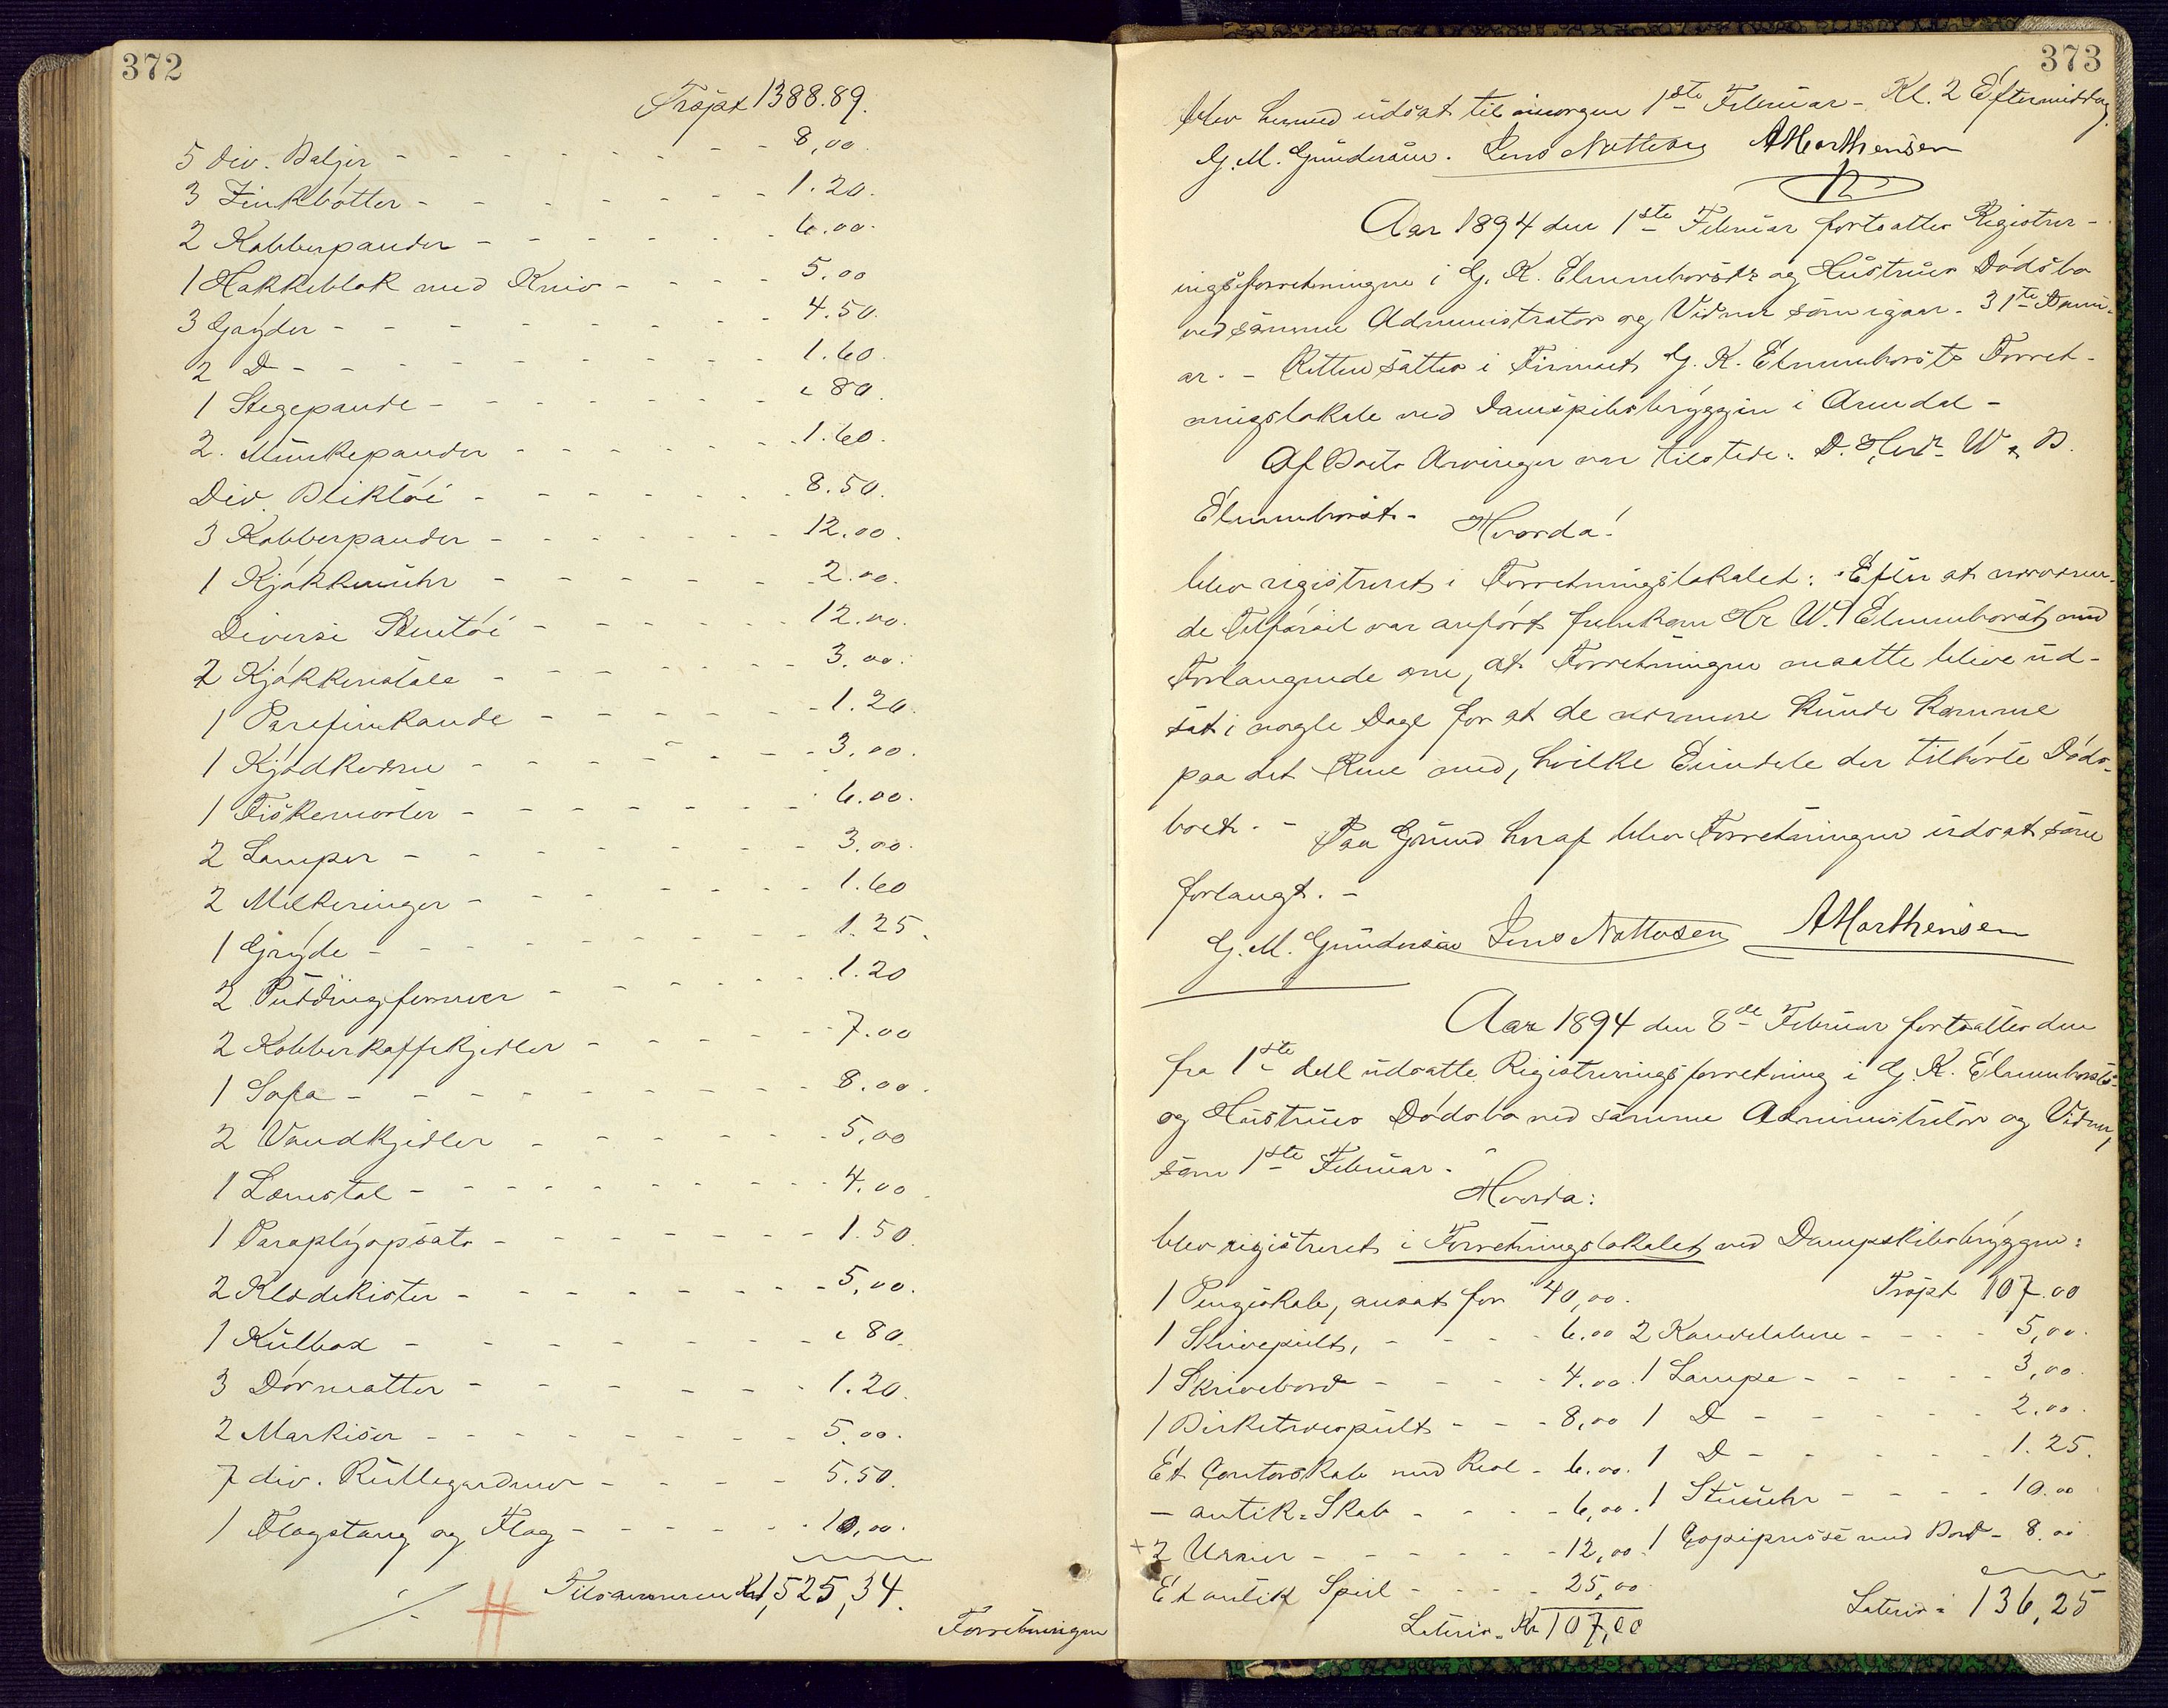 372
Trspt 1388.89.
5 div. Baljer - - - - - - - - 8,00.
3 Zinkbøtter - - - - - - - 1.20.
2 Kobberpander - - - - - - 6.00.
1 Hakkeblok med Kniv - - - - 5.00
3 Gryder - - - - - - - - 4.50.
2 D - - - - - - - - - 1.60.
1 Stegepande - - - - - - - " 80.
2. Munkepander - - - - - - 1.60.
Div. Bliktøi - - - - - - - 8.50.
3 Kobberpander - - - - - - 12.00.
1 Kjøkkenuhr - - - - - - 2.00.
Diverse Stentøi - - - - - - 12.00.
2 Kjøkkenstole - - - - - - 3.00.
1 Parafinkande - - - - - - 1.20.
1 Kjødkværn - - - - - - - 3.00.
1 Fiskemorter - - - - - - - 6.00.
2 Lamper - - - - - - - - 3.00.
2 Melkeringer - - - - - - - 1.60
1 Gryde - - - - - - - - - 1.25.
2 Puddingformer - - - - - - 1.20
2 Kobberkaffekjedler - - - - - 7.00
1 Sofa - - - - - - - - - 8.00.
2 Vandkjedler - - - - - - - 5,00
1 Lænstol - - - - - - - - 4.00.
1 Paraplyopsats - - - - - - 1.50.
2 Klædekister - - - - - - - 5,00.
1 Kulbox - - - - - - - - " 80.
3 Dørmatter - - - - - - - 1.20.
2 Markiser - - - - - - - - 5.00.
7 div. Rullegardiner - - - - 5.50.
1 Flagstang og Flag - - - - - 10,00.
Tilsammen Kr 1,525,34.
Forretningen
373
blev hermed udsat til imorgen 1ste Februar - Kl. 2 Eftermiddag.
G. M. Gundersen. Jens Nottesen AMorthensen
Aar 1894 den 1ste Februar fortsattes Registrer-
ingsforretningen i G. K. Elmenhorsts og Hustrues Dødsbo
ved samme Administrator og Vidner som igaar. 31te Janu-
ar. - Retten sattes i Firmaet G. K. Elmenhorsts Forret-
ningslokale ved Dampskibsbryggen i Arendal -
Af Boets Arvinger var tilstede: D. Herr W & B.
Elmenhorst. -
Hvorda!
blev registreret i Forretningslokalet: Efter at nærværen-
de Tilførsel var anført fremkom Hr W. Elmenhorst med
Forlangende om, at Forretningen maatte blive ud-
sat i nogle Dage for at de nærmere kunde komme
paa det Rene med, hvilke Eiendele der tilhørte Døds-
boet. - Paa Grund heraf blev Forretningen udsat som
forlangt. -
G. M. Gundersen Jens Nottesen AMorthensen
Aar 1894 den 8de Februar fortsattes den
fra 1ste ds udsatte Registreringsforretning i G. K. Elmenhorsts
og Hustrues Dødsbo ved samme Administrator og Vidner,
som 1ste Februar. -
Hvorda:
blev registreret i Forretningslokalet ved Dampskibsbryggen:
1 Pengeskab, ansat for 40,00.
1 Skrivepult, - - - - 6.00
1 Skrivebord - - - - 4.00.
1 Birketræspult - - - 8,00
Et Contorskab med Reol - 6.00.
— antik-Skab - - - - 6,00.
+ 2 Urner - - - - - - 12,00.
Et antik Speil - - - - 25,00
Lateris Kr 107,00
Trspt 107.00
2 Kandelabere - - - - 5,00.
1 Lampe - - - - - 3,00.
1 D - - - - - 2.00.
1 D - - - - - 1.25.
1 Stueuhr - - - - 10.00
1 Copipresse med Bord - 8.00
Lateris: 136,25